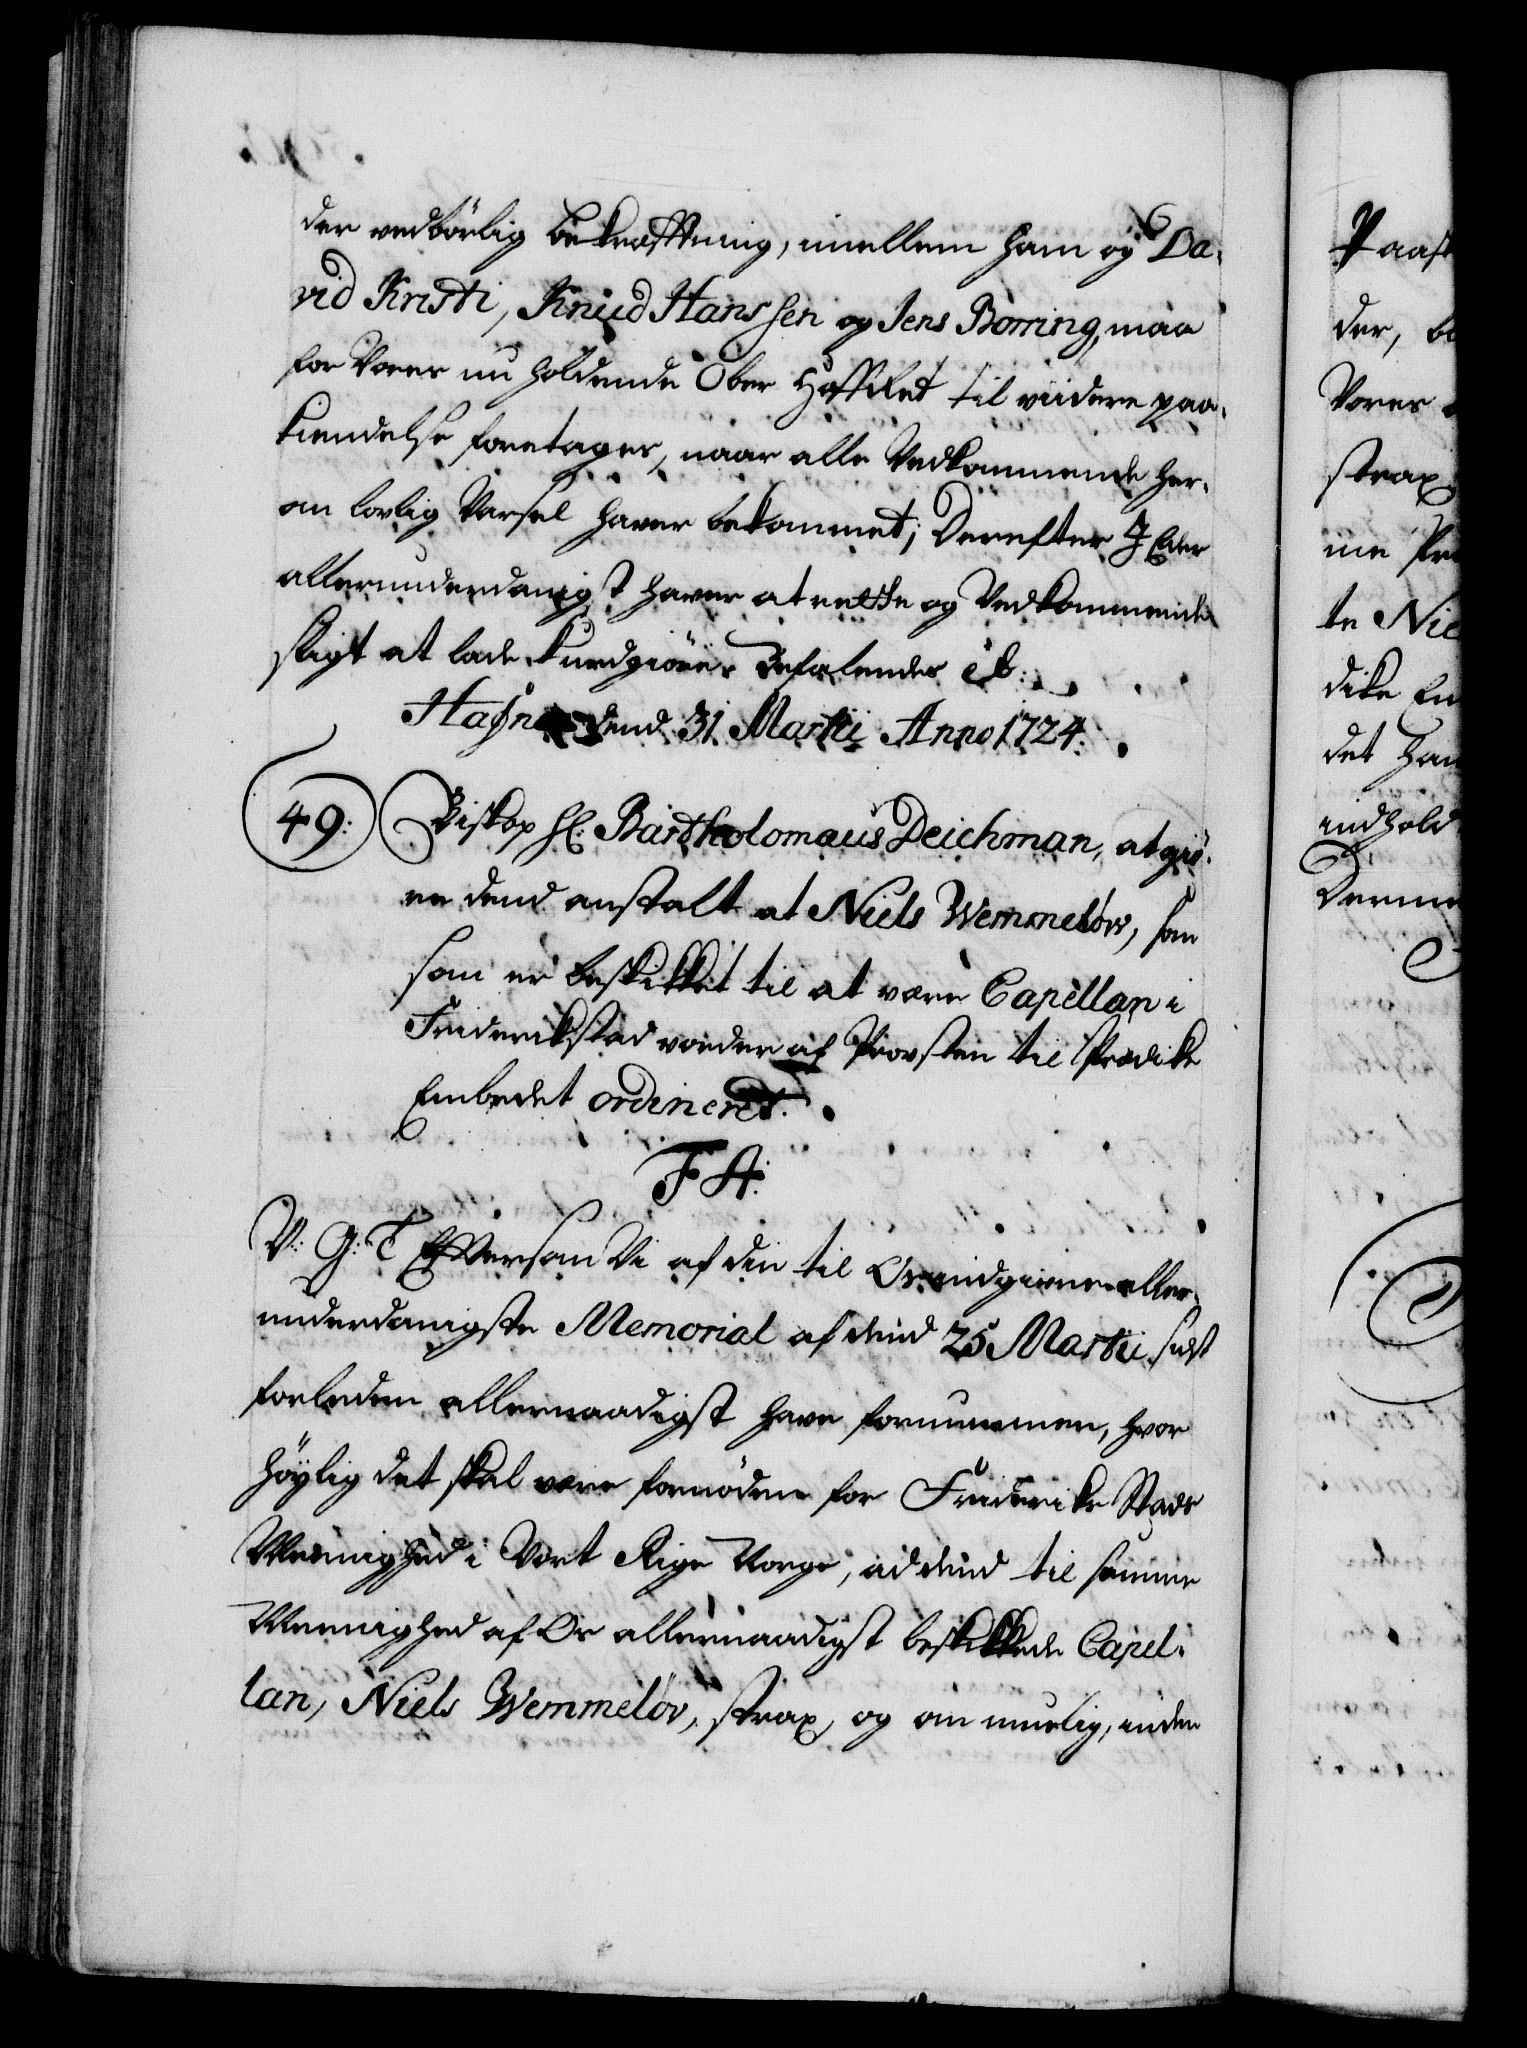 der vedbörlig bekrefftning, imellem ham og Da-
vid Kristi, Knud Hanssen og Jens Borring, maa
for Vores nu holdende Ober Hoff Ret til viidere paa-
kiendelse foretages, naar alle Vedkommende her-
om lovlig Varsel haver bekommet; Derefter I Eder
allerunderdanigst haver at rette og Vedkommende
sligt at lade kundgiöre. Befalendes etc:
Hafniæ dend 31 Martii Anno 1724.
49: Biskop Hr: Bartholomæus Deichman, at giö-
re dend anstalt at Niels Wemmelöv, som
som er beskikket til at være Capellan i
Friderikstad vorder af Provsten til Prædike
Embedet ordineret.
F 4.
V: G: T Eftersom Vi af din til Os indgivne aller-
underdanigste Memorial af dend 25 Martii sidst
forleden allernaadigst have fornummen, hvor
höylig det skal være fornöden for Friderikstads
Meenighed i Vort Rige Norge, at dend til samme
Meenighed af Os allernaadigst beskikkede Capel-
lan, Niels Wemmelöv, strax, og om muelig, inden
Paask
der, be
Vores
strax
me Pro
te Nie
dike Em
det han
indhold
Derme